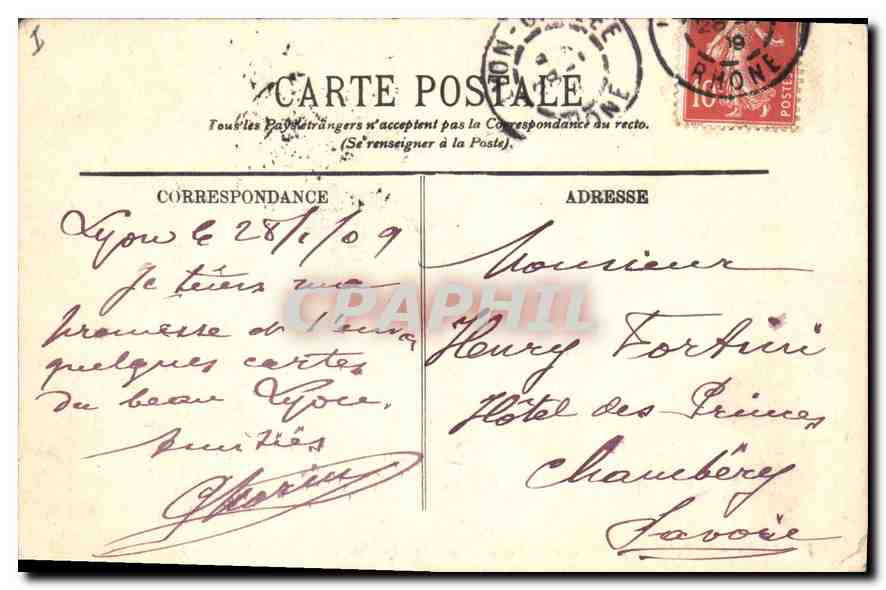 I
CARTE POSTALE
Tous les Pays étrangers n'acceptent pas la Correspondance au recto.
(Se renseigner à la Poste).
RHONE
10
POSTES
CORRESPONDANCE
Lyon le 28/1/09
Je tiens ma
promesse et t'envoi
quelques cartes
du beau Lyon.
Amitiés
ADRESSE
Monsieur
Henry Fortini
Hôtel des Princes
Chambéry
Savoie
CPAPHIL